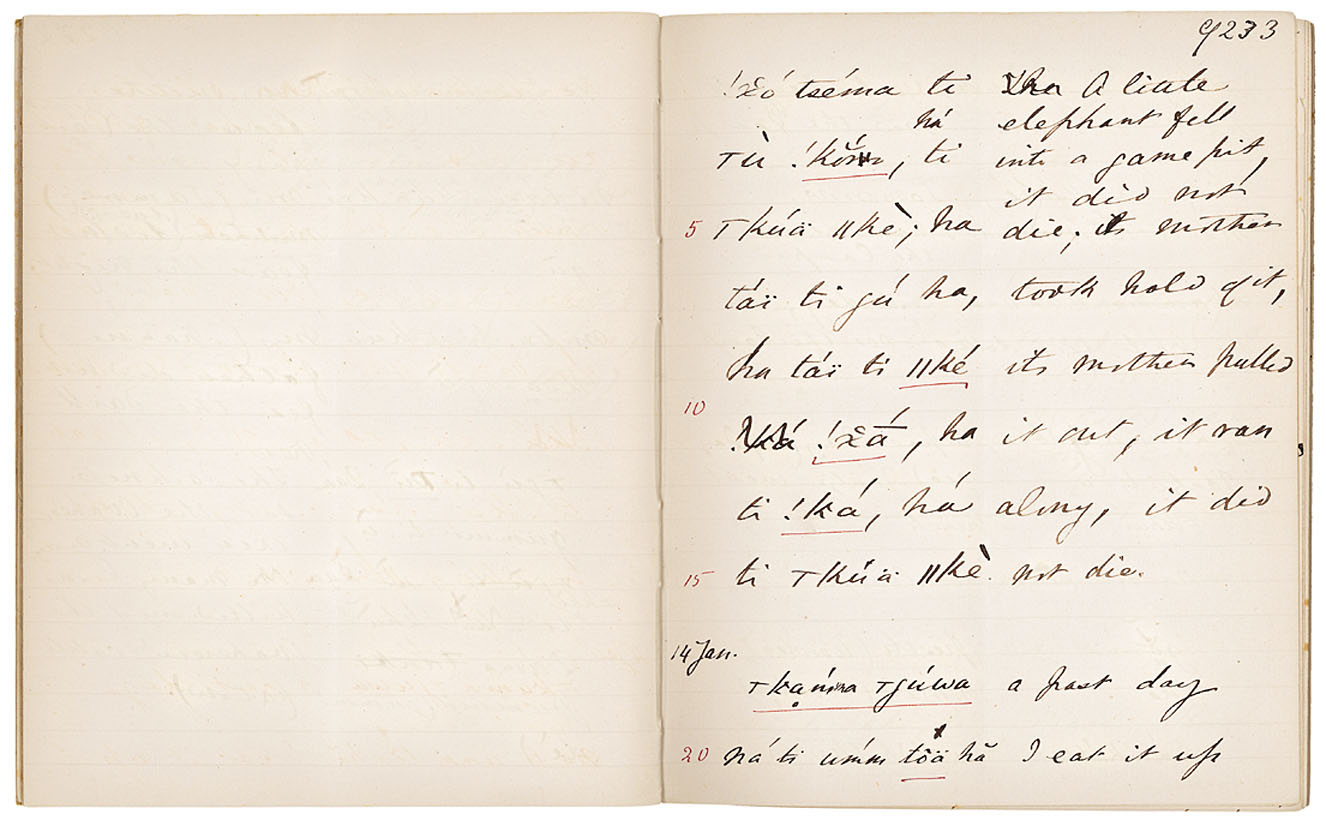 9233
!x̆ó tséma ti A little
há elephant fell
ꞱÙ !kŏ́m, ti into a game pit,
it did not
5 Ʇkúä ǁkè; ha die; its mother
táï ti gú ha, took hold of it,
ha táï ti ǁké its mother pulled
10
!x̆á̄, ha it out, it ran
ti !ká, há along, it did
15 ti Ʇkúä ǁkè. not die.
14 Jan.
Ʇkạḿma Ʇgúwa a past day
20 ná ti úmm tôä hă I eat it up